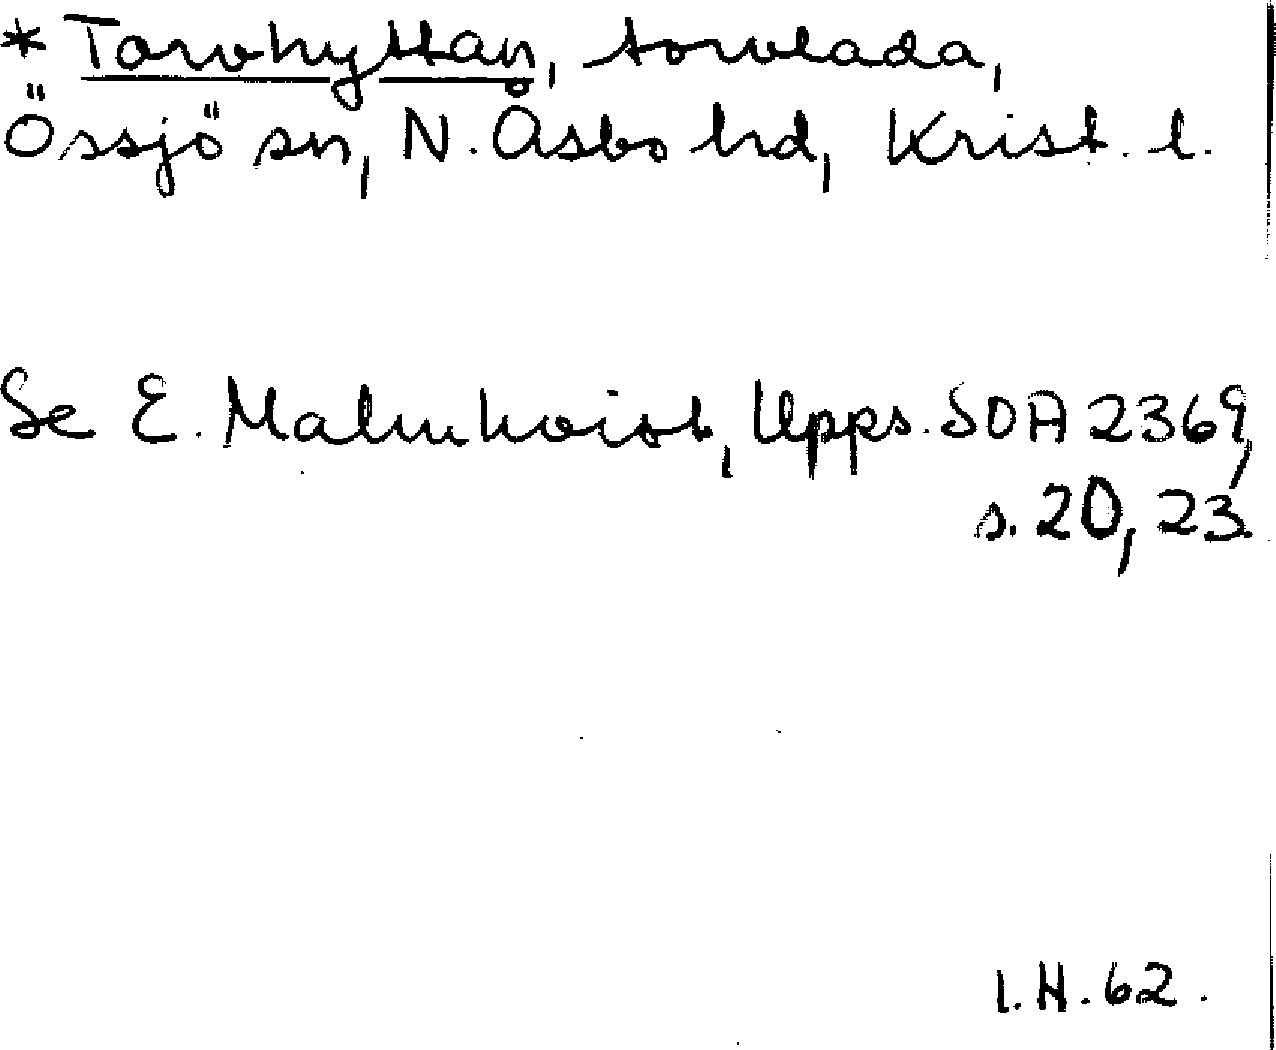 * Torvhyttan, torvlada,
Össjö sn, N. Åsbo hd, Krist. l.
Se E. Malmkvist, Upps. SOA 2369,
s. 20, 23.
I.H. 62.